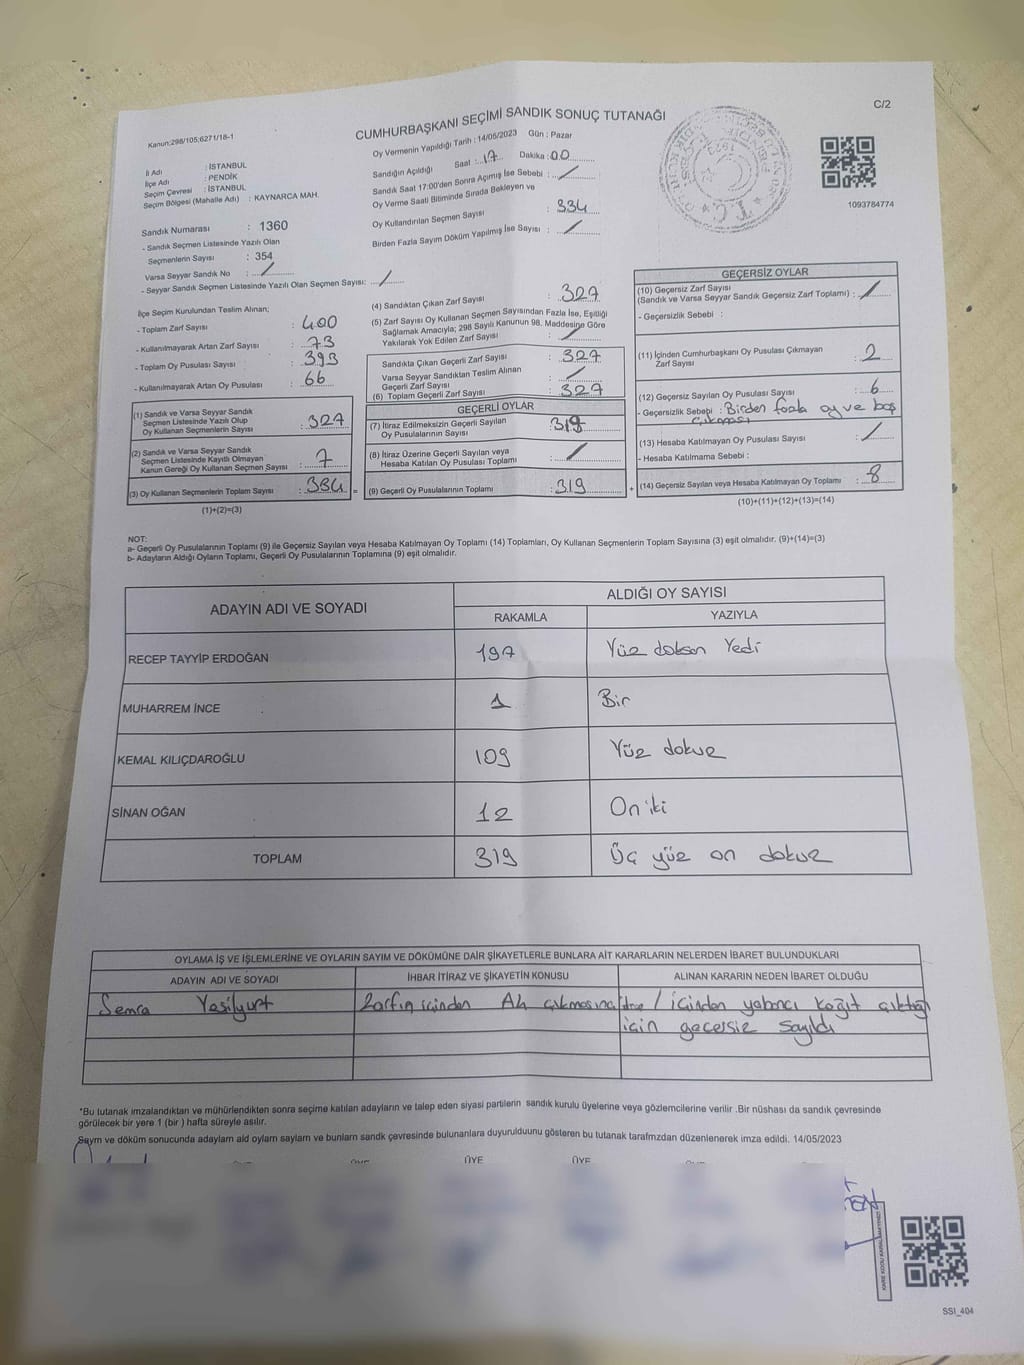 C/2
Kanun:298/105;6271/18-1
CUMHURBAŞKANI SEÇİMİ SANDIK SONUÇ TUTANAĞI
1093784774
İl Adı : İSTANBUL
İlçe Adı : PENDİK
Seçim Çevresi : İSTANBUL
Seçim Bölgesi (Mahalle Adı) : KAYNARCA MAH.
Sandık Numarası : 1360
- Sandık Seçmen Listesinde Yazılı Olan
Seçmenlerin Sayısı : 354
Varsa Seyyar Sandık No : /
- Seyyar Sandık Seçmen Listesinde Yazılı Olan Seçmen Sayısı: /
Oy Vermenin Yapıldığı Tarih : 14/05/2023 Gün : Pazar
Sandığın Açıldığı Saat : 17 Dakika : 00
Sandık Saat 17:00'den Sonra Açımış İse Sebebi : /
Oy Verme Saati Bitiminde Sırada Bekleyen ve
Oy Kullandırılan Seçmen Sayısı : 334
Birden Fazla Sayım Döküm Yapılmış İse Sayısı : /
İlçe Seçim Kurulundan Teslim Alınan;
- Toplam Zarf Sayısı : 400
- Kullanılmayarak Artan Zarf Sayısı : 73
- Toplam Oy Pusulası Sayısı : 393
- Kullanılmayarak Artan Oy Pusulası : 66
(1) Sandık ve Varsa Seyyar Sandık
Seçmen Listesinde Yazılı Olup
Oy Kullanan Seçmenlerin Sayısı : 327
(2) Sandık ve Varsa Seyyar Sandık
Seçmen Listesinde Kayıtlı Olmayan
Kanun Gereği Oy Kullanan Seçmen Sayısı : 7
(3) Oy Kullanan Seçmenlerin Toplam Sayısı : 334 =
(1)+(2)=(3)
(4) Sandıktan Çıkan Zarf Sayısı : 327
(5) Zarf Sayısı Oy Kullanan Seçmen Sayısından Fazla İse, Eşitliği
Sağlamak Amacıyla; 298 Sayılı Kanunun 98. Maddesine Göre
Yakılarak Yok Edilen Zarf Sayısı : /
Sandıkta Çıkan Geçerli Zarf Sayısı : 327
Varsa Seyyar Sandıktan Teslim Alınan
Geçerli Zarf Sayısı : /
(6) Toplam Geçerli Zarf Sayısı : 327
GEÇERLİ OYLAR
(7) İtiraz Edilmeksizin Geçerli Sayılan
Oy Pusulalarının Sayısı : 319
(8) İtiraz Üzerine Geçerli Sayılan veya
Hesaba Katılan Oy Pusulası Toplamı : /
(9) Geçerli Oy Pusulalarının Toplamı : 319 +
GEÇERSİZ OYLAR
(10) Geçersiz Zarf Sayısı
(Sandık ve Varsa Seyyar Sandık Geçersiz Zarf Toplamı) : /
- Geçersizlik Sebebi :
(11) İçinden Cumhurbaşkanı Oy Pusulası Çıkmayan
Zarf Sayısı : 2
(12) Geçersiz Sayılan Oy Pusulası Sayısı : 6
- Geçersizlik Sebebi : Birden fazla oy ve boş
çıkması
(13) Hesaba Katılmayan Oy Pusulası Sayısı : /
- Hesaba Katılmama Sebebi :
(14) Geçersiz Sayılan veya Hesaba Katılmayan Oy Toplamı : 8
(10)+(11)+(12)+(13)=(14)
NOT:
a- Geçerli Oy Pusulalarının Toplamı (9) ile Geçersiz Sayılan veya Hesaba Katılmayan Oy Toplamı (14) Toplamları, Oy Kullanan Seçmenlerin Toplam Sayısına (3) eşit olmalıdır. (9)+(14)=(3)
b- Adayların Aldığı Oyların Toplamı, Geçerli Oy Pusulalarının Toplamına (9) eşit olmalıdır.
ADAYIN ADI VE SOYADI
ALDIĞI OY SAYISI
RAKAMLA YAZIYLA
RECEP TAYYİP ERDOĞAN 197 Yüz doksan Yedi
MUHARREM İNCE 1 Bir
KEMAL KILIÇDAROĞLU 109 Yüz dokuz
SİNAN OĞAN 12 On iki
TOPLAM 319 Üç yüz on dokuz
OYLAMA İŞ VE İŞLEMLERİNE VE OYLARIN SAYIM VE DÖKÜMÜNE DAİR ŞİKAYETLERLE BUNLARA AİT KARARLARIN NELERDEN İBARET BULUNDUKLARI
ADAYIN ADI VE SOYADI İHBAR İTİRAZ VE ŞİKAYETİN KONUSU ALINAN KARARIN NEDEN İBARET OLDUĞU
Semra Yeşilyurt Zarfın içinden çıkmasına / İçinden yabancı kağıt çıktığı
için geçersiz sayıldı
*Bu tutanak imzalandıktan ve mühürlendikten sonra seçime katılan adayların ve talep eden siyasi partilerin sandık kurulu üyelerine veya gözlemcilerine verilir .Bir nüshası da sandık çevresinde
görülecek bir yere 1 (bir ) hafta süreyle asılır.
Sayım ve döküm sonucunda adaylarn ald oylarn saylarn ve bunlarn sandk çevresinde bulunanlara duyurulduunu gösteren bu tutanak tarafmzdan düzenlenerek imza edildi. 14/05/2023
ÜYE ÜYE
SSİ_404